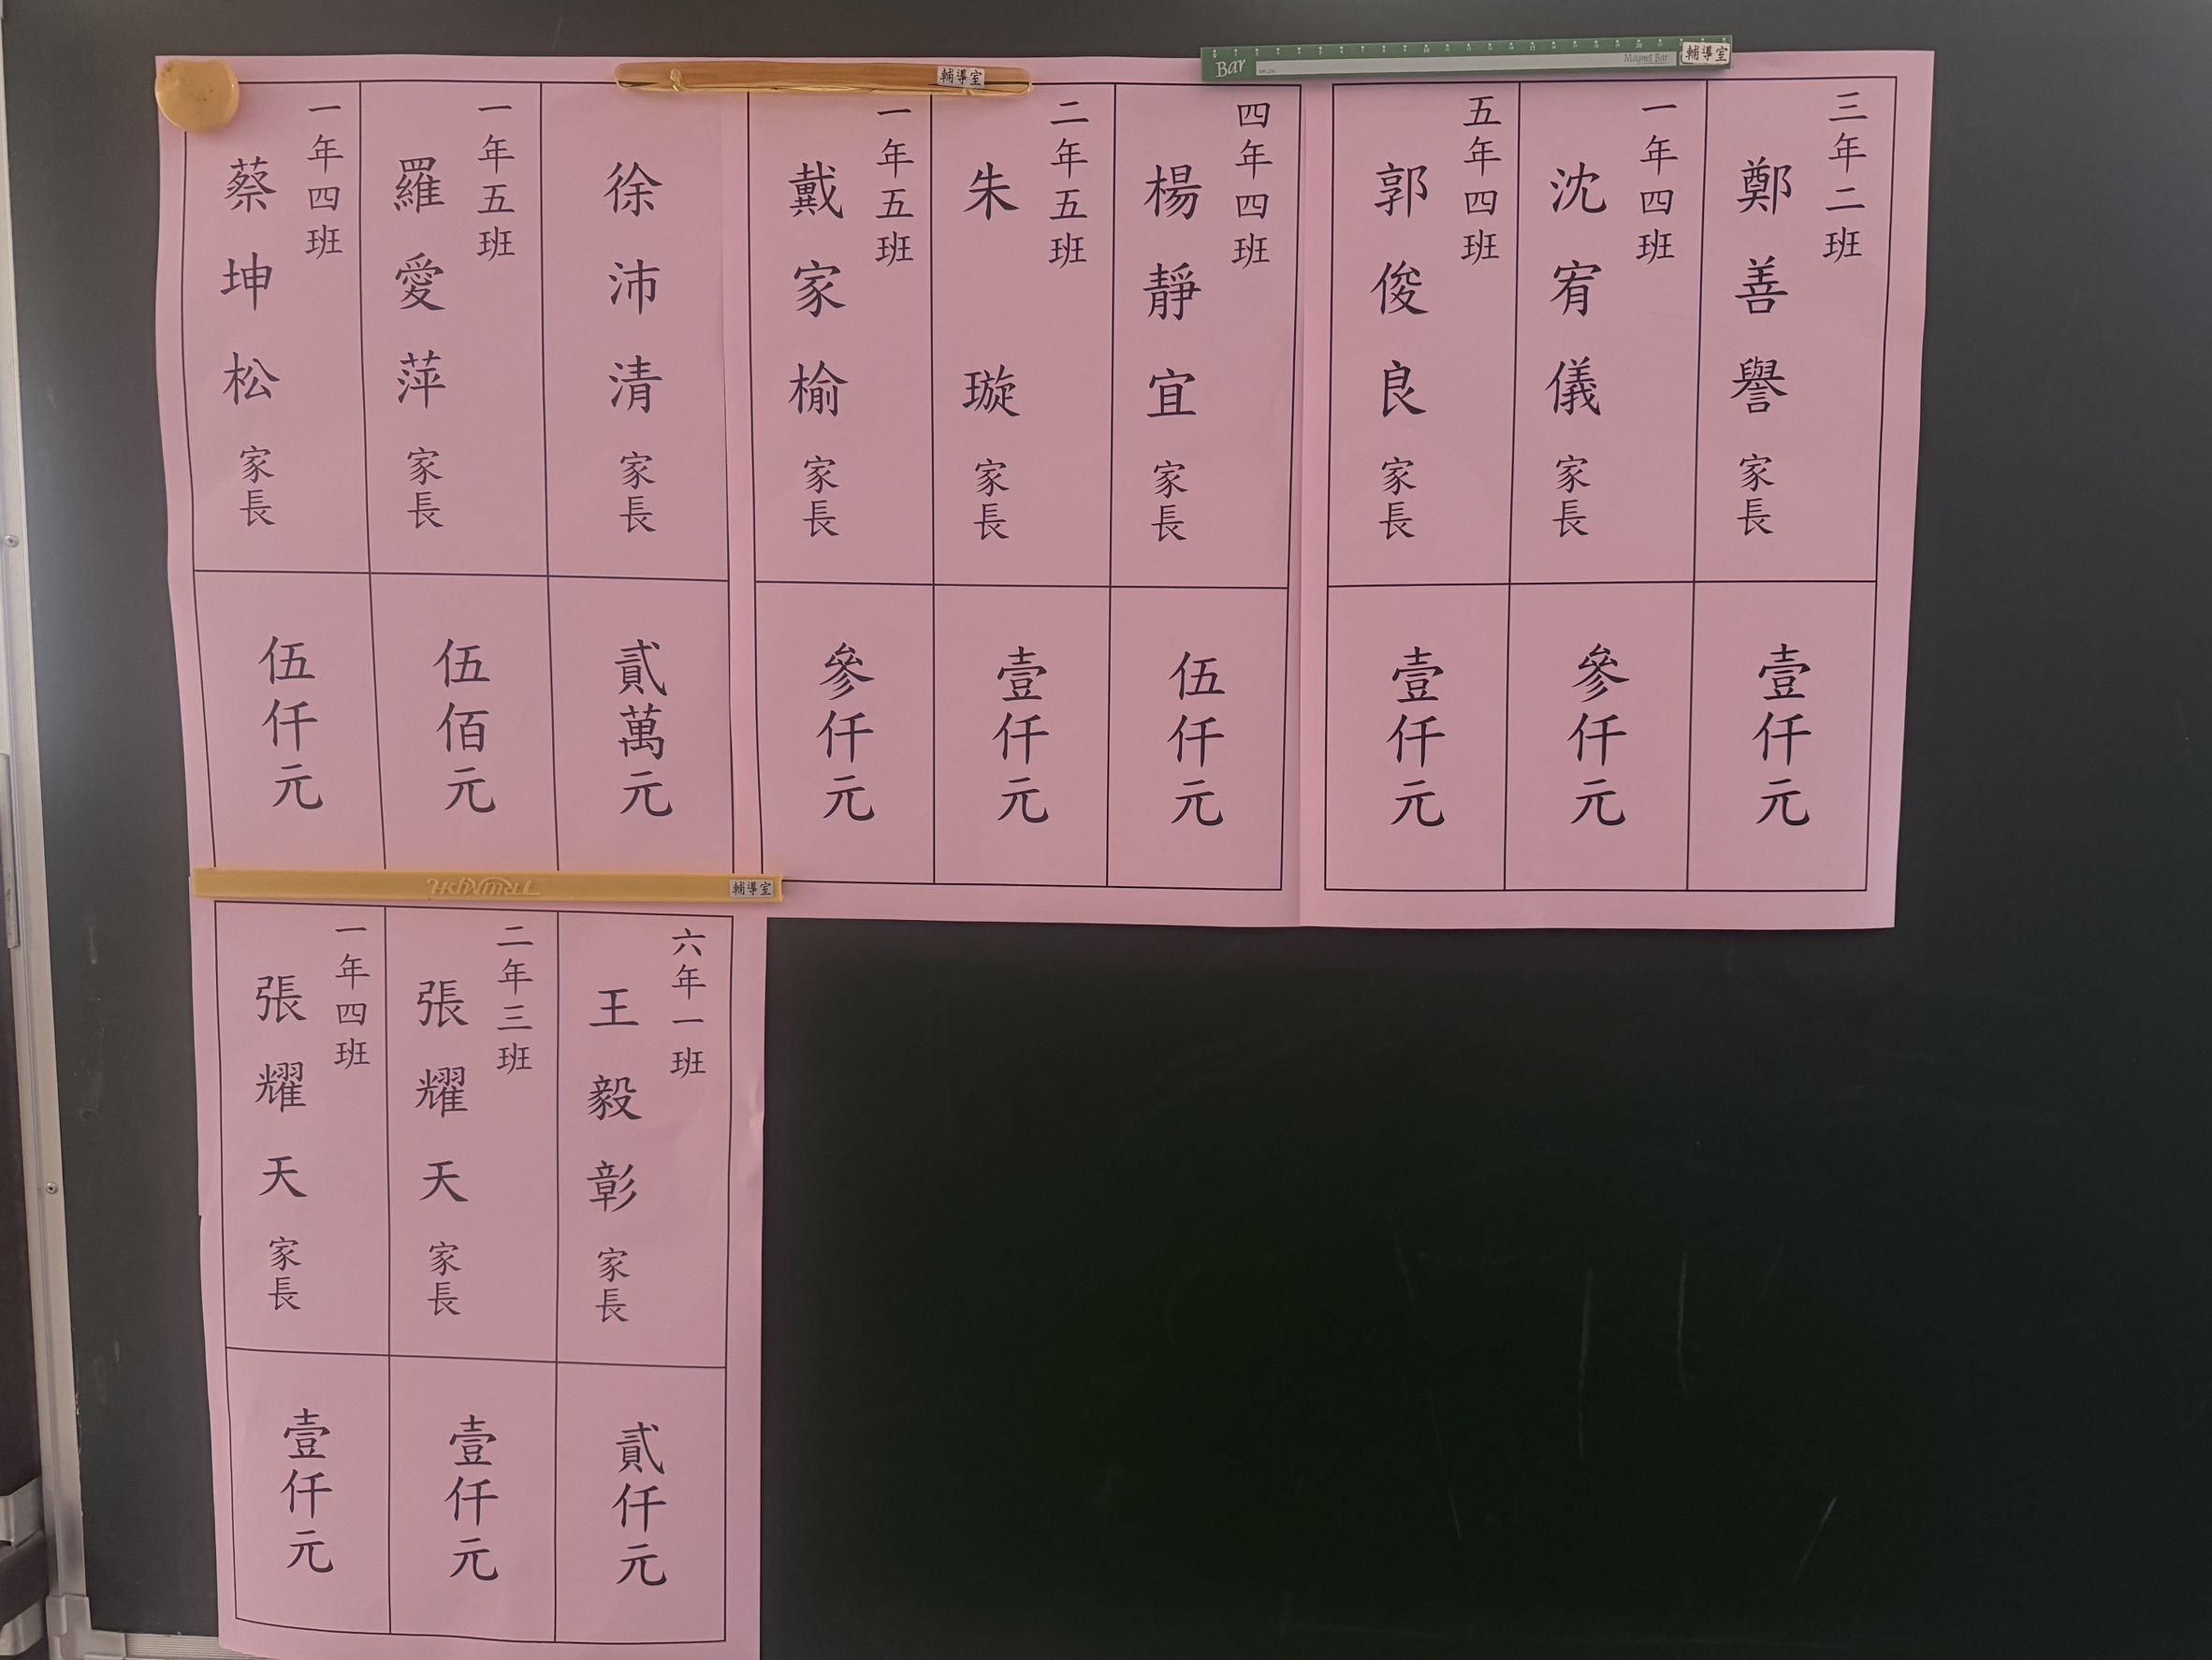 Bar
Magnet Bar
輔導室
輔導室
三年二班
鄭善譽家長
壹仟元
一年四班
沈宥儀家長
參仟元
五年四班
郭俊良家長
壹仟元
四年四班
楊靜宜家長
伍仟元
二年五班
朱璇家長
壹仟元
一年五班
戴家榆家長
參仟元
徐沛清家長
貳萬元
一年五班
羅愛萍家長
伍佰元
一年四班
蔡坤松家長
伍仟元
TRIUMPH
輔導室
六年一班
王毅彰家長
貳仟元
二年三班
張耀天家長
壹仟元
一年四班
張耀天家長
壹仟元